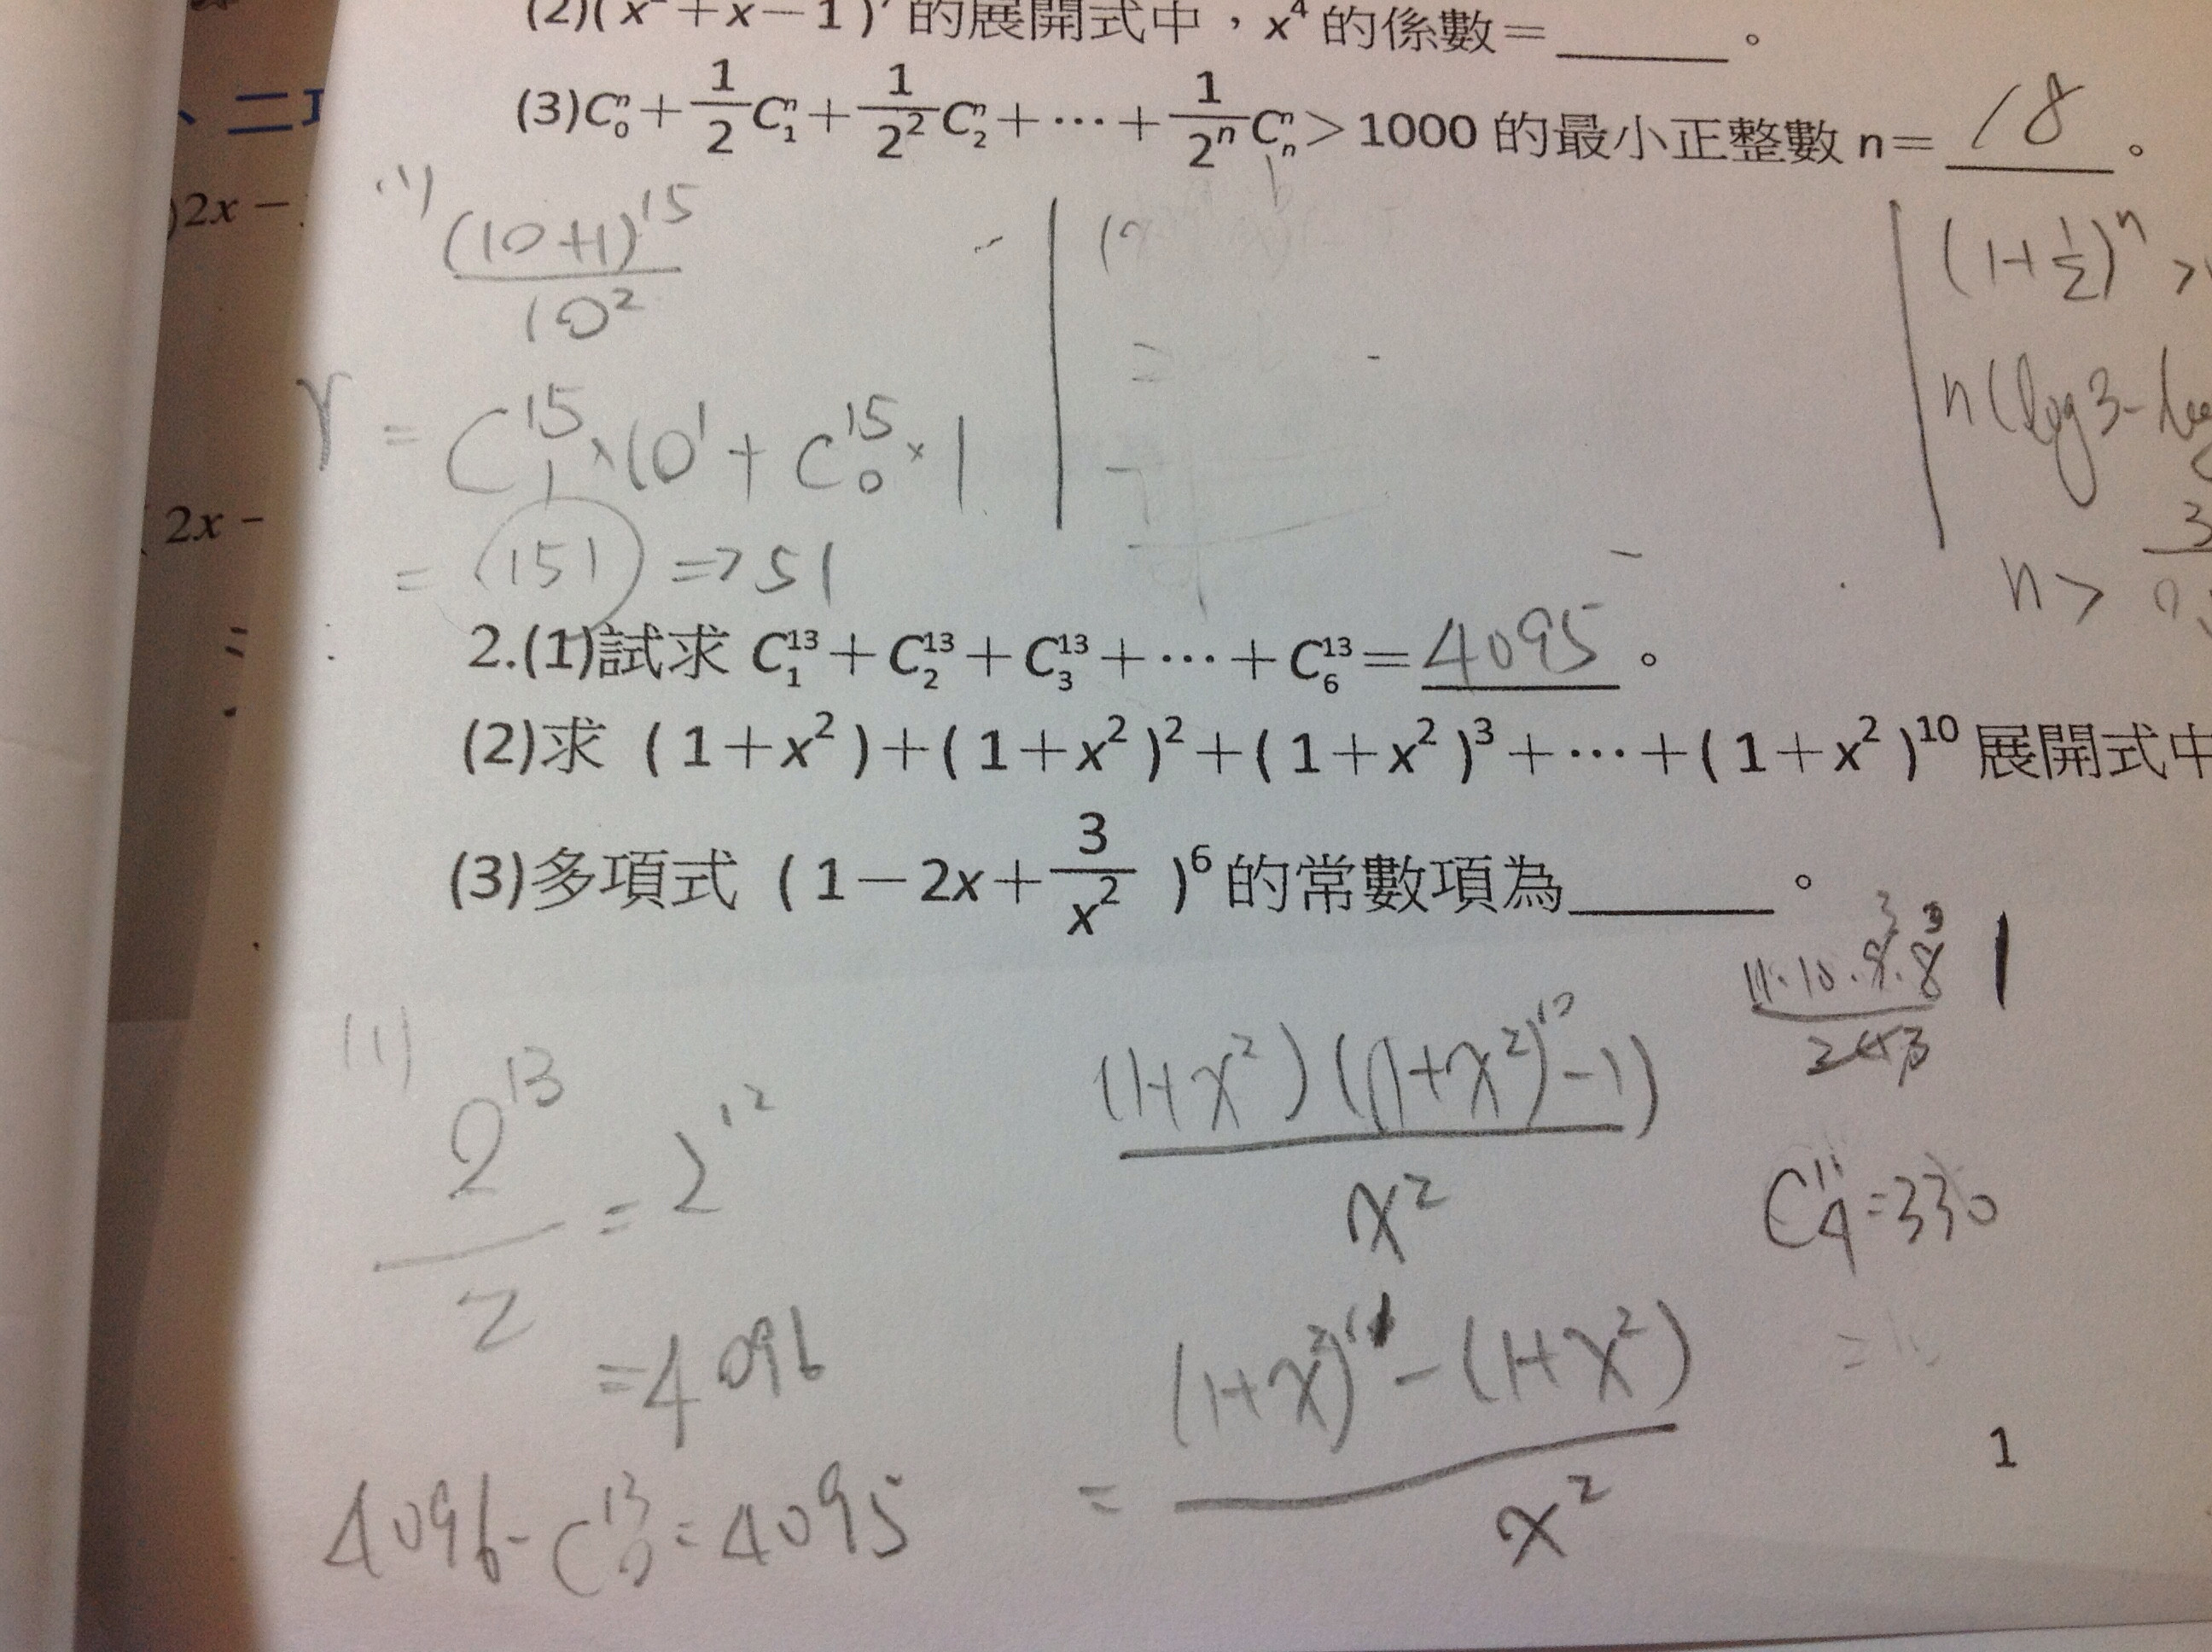 (2)( x²+x−1 ) 的展開式中，x⁴ 的係數＝______。
(3)C₀ⁿ＋1/2 C₁ⁿ＋1/2² C₂ⁿ＋⋯＋1/2ⁿ Cₙⁿ＞1000 的最小正整數 n＝ 18 。
、二項
)2x−
2x−
(1)
(10+1)¹⁵/10²
r = C₁¹⁵×10¹+C₀¹⁵×1
= 151 => 51
(1+1/2)ⁿ >
n(log3-log
n >
2.(1)試求 C₁¹³＋C₂¹³＋C₃¹³＋⋯＋C₆¹³＝4095。
(2)求 ( 1＋x² )＋( 1＋x² )²＋( 1＋x² )³＋⋯＋( 1＋x² )¹⁰ 展開式中
(3)多項式 ( 1−2x＋3/x² )⁶ 的常數項為______。
(1)
2¹³/2 = 2¹²
=4096
4096-C₀¹³=4095
(1+x²)((1+x²)¹⁰-1)/x²
= (1+x²)¹¹-(1+x²)/x²
C₄¹¹=330
1